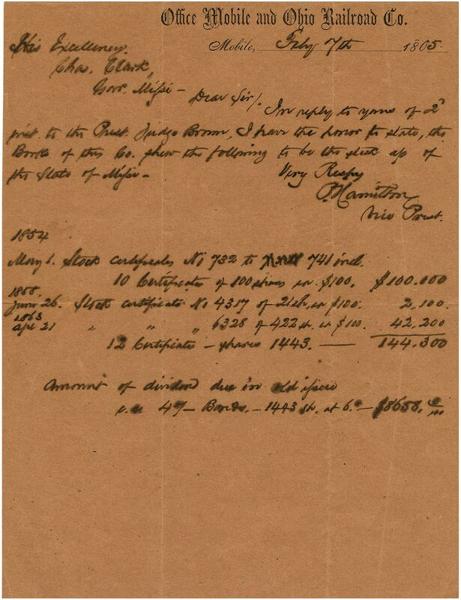 Office Mobile and Ohio Railroad Co.
Mobile, Feby 7th 1865.
His Excellency
Chas. Clark,
Gov. Missi -
Dear Sir/.
In reply to yours of 2d
inst. to the Prest. Judge Brown, I have the honor to state, the
Books of this Co. shew the following to be the stock a/c of
the State of Missi -
Very Respy
P. Hamilton
Vice Prest.
1854
May 1. Stock certificates No 732 to 741 incl.
10 Certificates of 100 shares at $100. $100.000
June 26. Stock certificate No 4317 of 21 sh. at $100. 2,100
1863
apl 21 " " " 6328 of 422 sh. at $100. 42,200
12 Certificates - shares 1443. — 144,300
Amount of dividend due in old issue
4% - Bonds. - 1443 sh. at 6. - $8658.